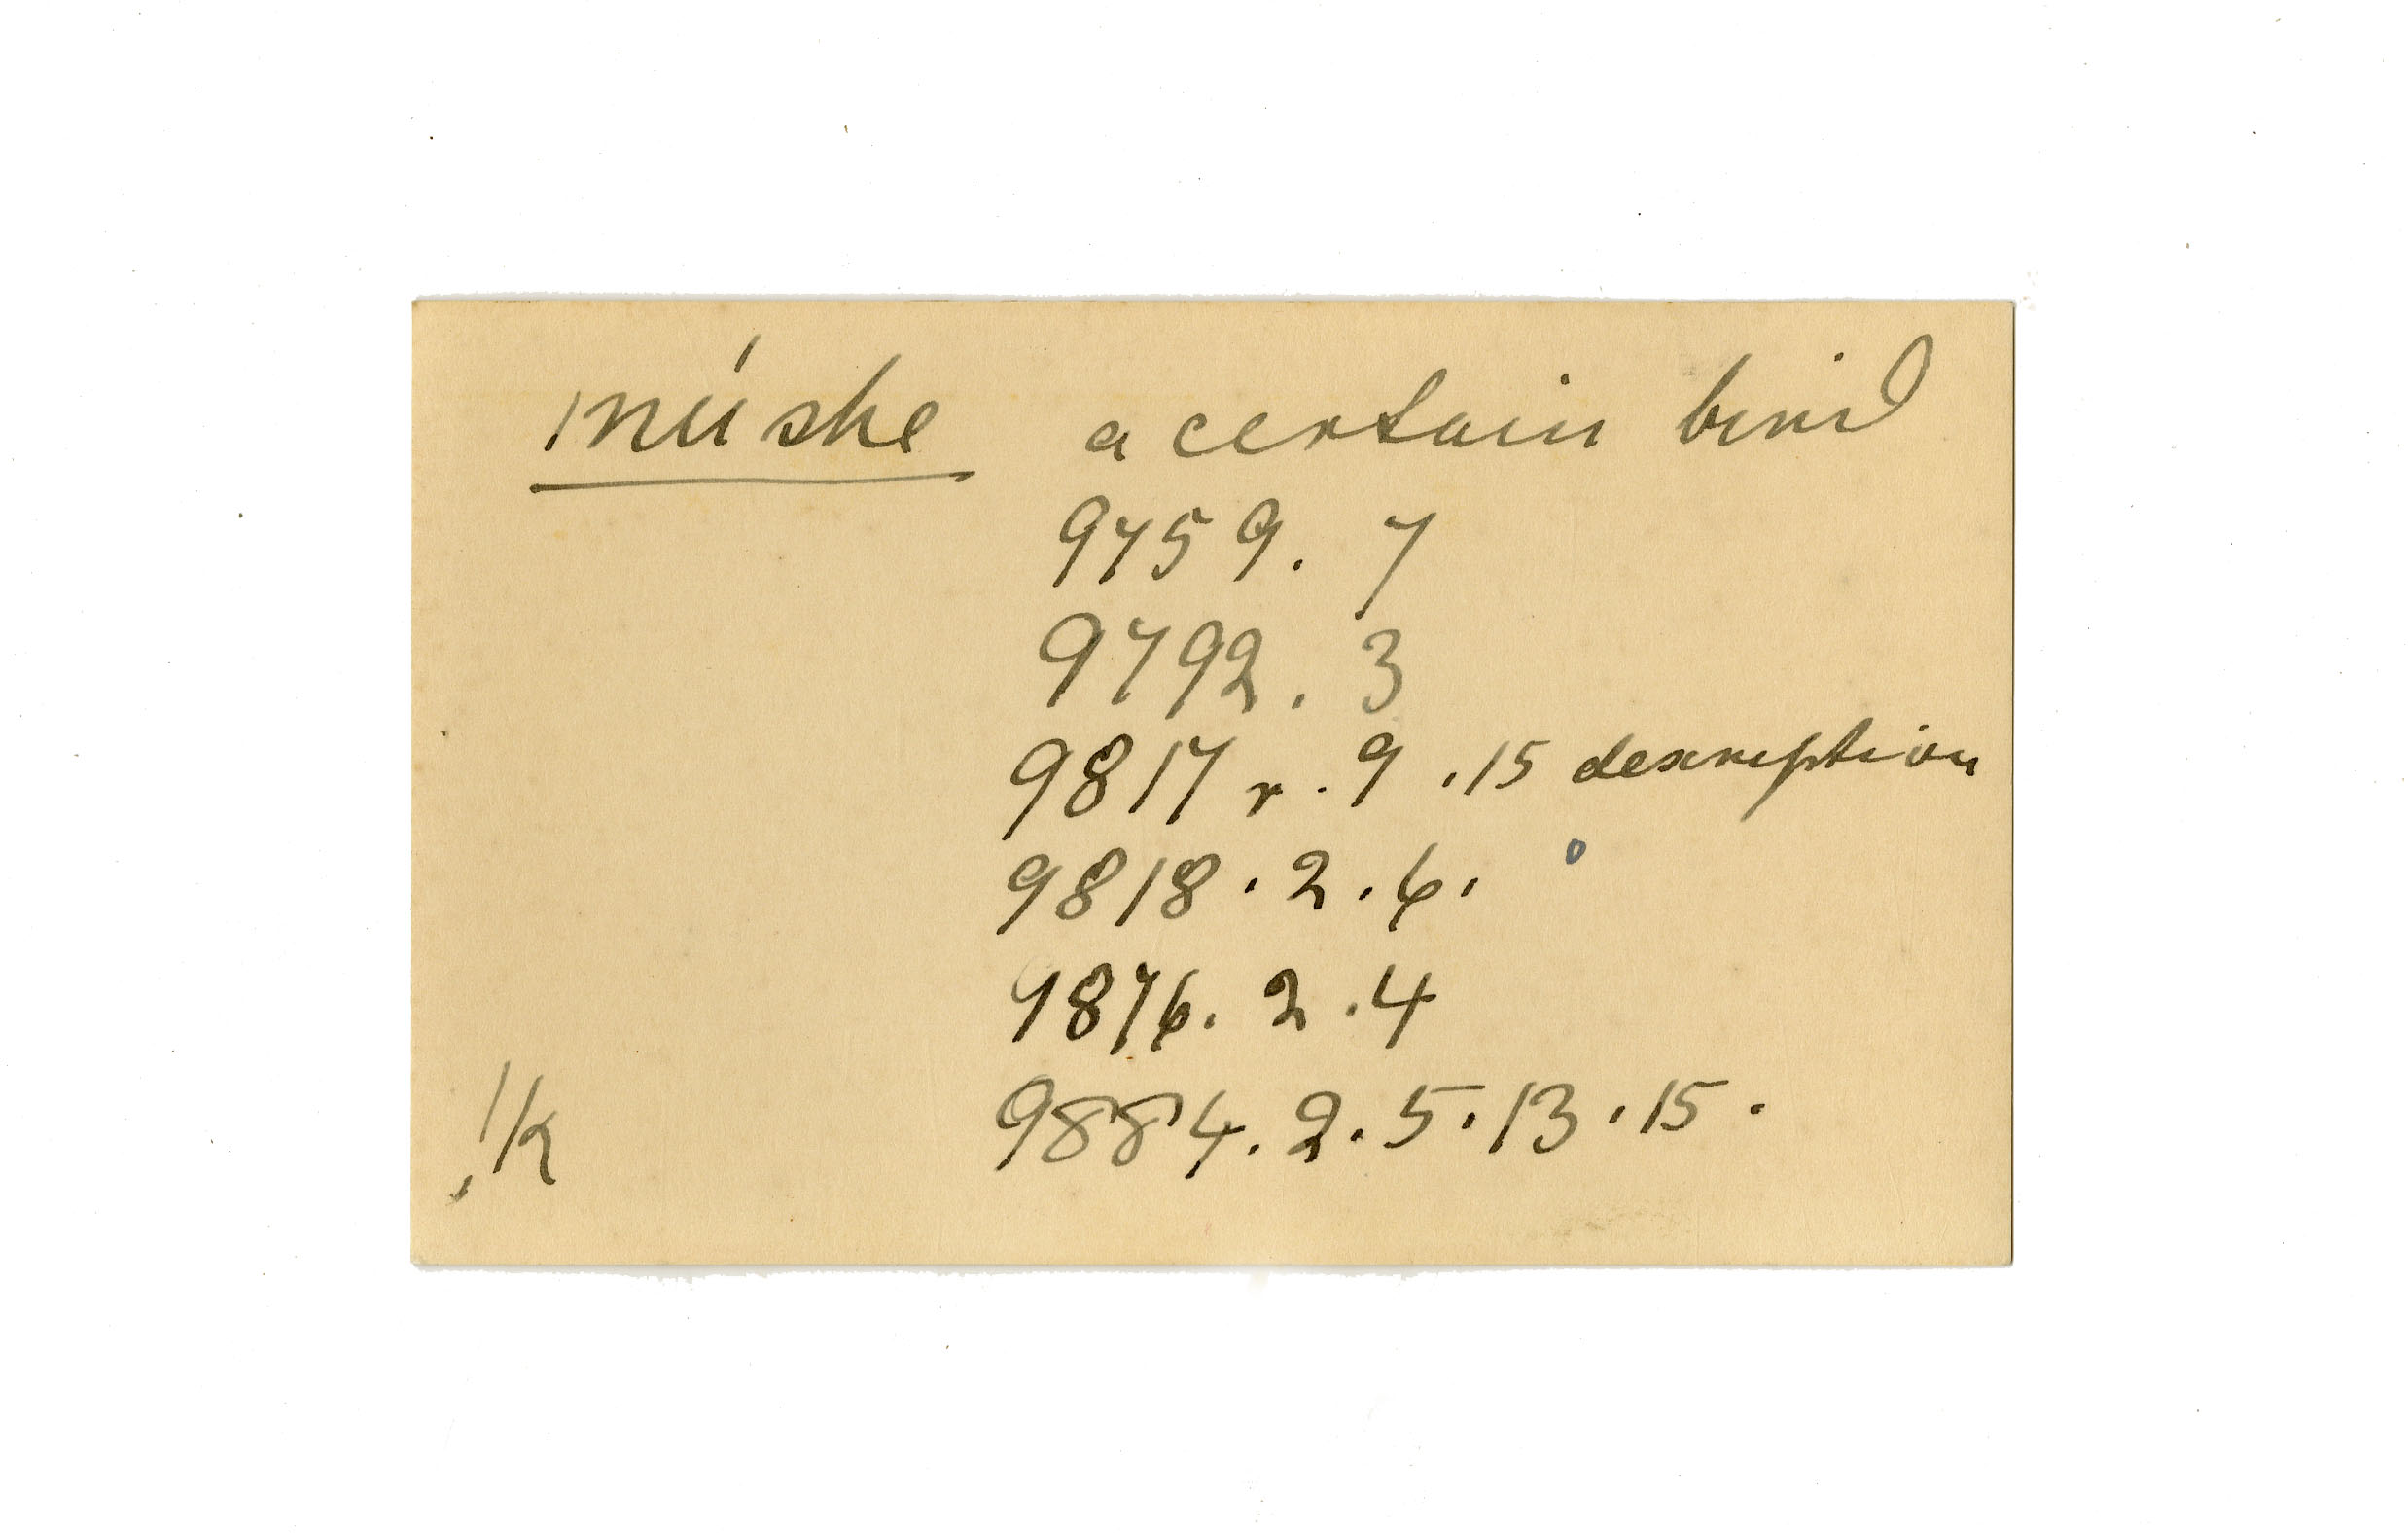 múshe a certain bird
9759. 7
9792. 3
9817 r. 9 .15 description
9818 . 2 . 6 .
9876. 2 .4
9884. 2. 5. 13 . 15 .
!k